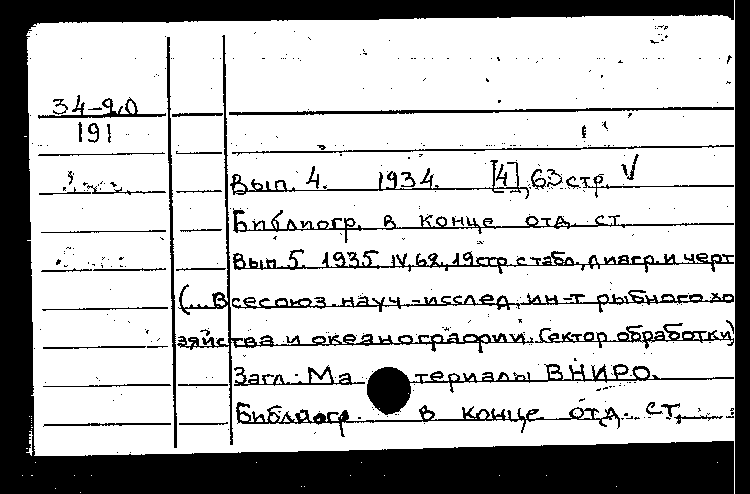 3
34-20
191
Вып. 4. 1934. [4], 63 стр. V
Библиогр. в конце отд. ст.
Вып. 5. 1935. IV, 62, 19 стр. с табл., диагр. и черт
(...Всесоюз. науч.-исслед. ин-т рыбного хо
зяйства и океанографии. Сектор обработки)
Загл.: Материалы ВНИРО.
Библиогр. в конце отд. ст.